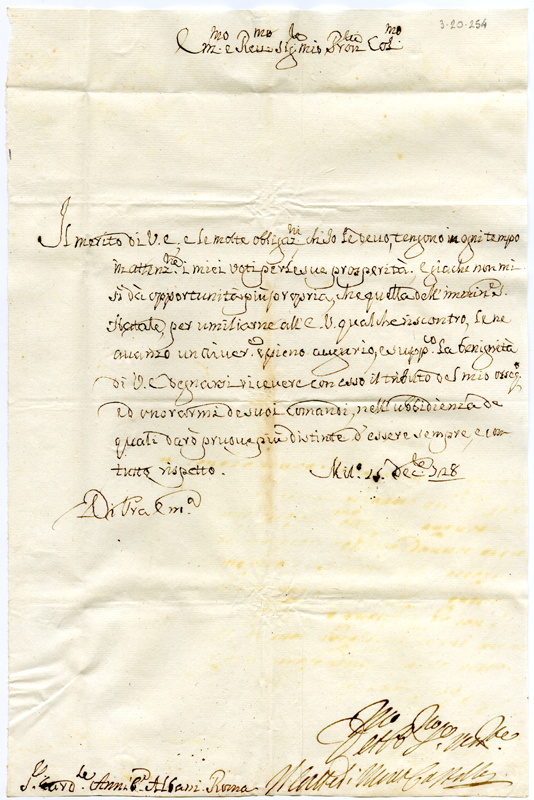 3-20-254
Em.mo e Rev.mo Sig.re mio Pron Col.mo
Il merito di V. E., e le molte obligaz.ni ch'Io le devo, tengono in ogni tempo
in attenz.ne i miei voti per le sue prosperità. E giache non mi
si dà opportunità più propria, che quella dell'immin.e S.
Natale, per umiliarne all'E. V. qualche riscontro, le ne
avanzo un pieno augurio, e supp.co la benignità
di V. E. degnarsi ricevere con esso il tributo del mio osseq.
ed onorarmi de suoi Comandi, nell'ubbidienza de
quali darò pruove più distinte d'essere sempre, e con
tutto rispetto. Mil.o 15 Dec.e 728
Di V.ra Em.a
S.r Card.le Annib.e Albani. Roma